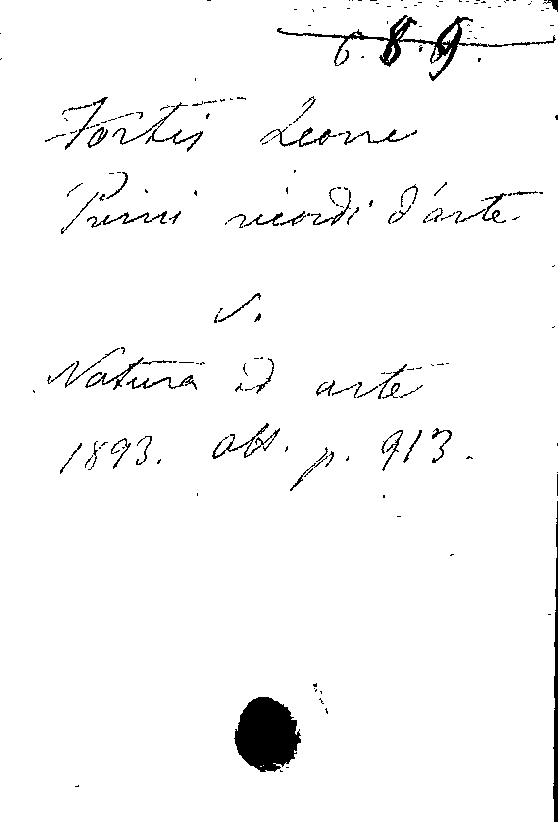 6.8.9.
Fortis Leone
Primi ricordi d'arte.
v.
Natura ed arte
1893. p. 913.